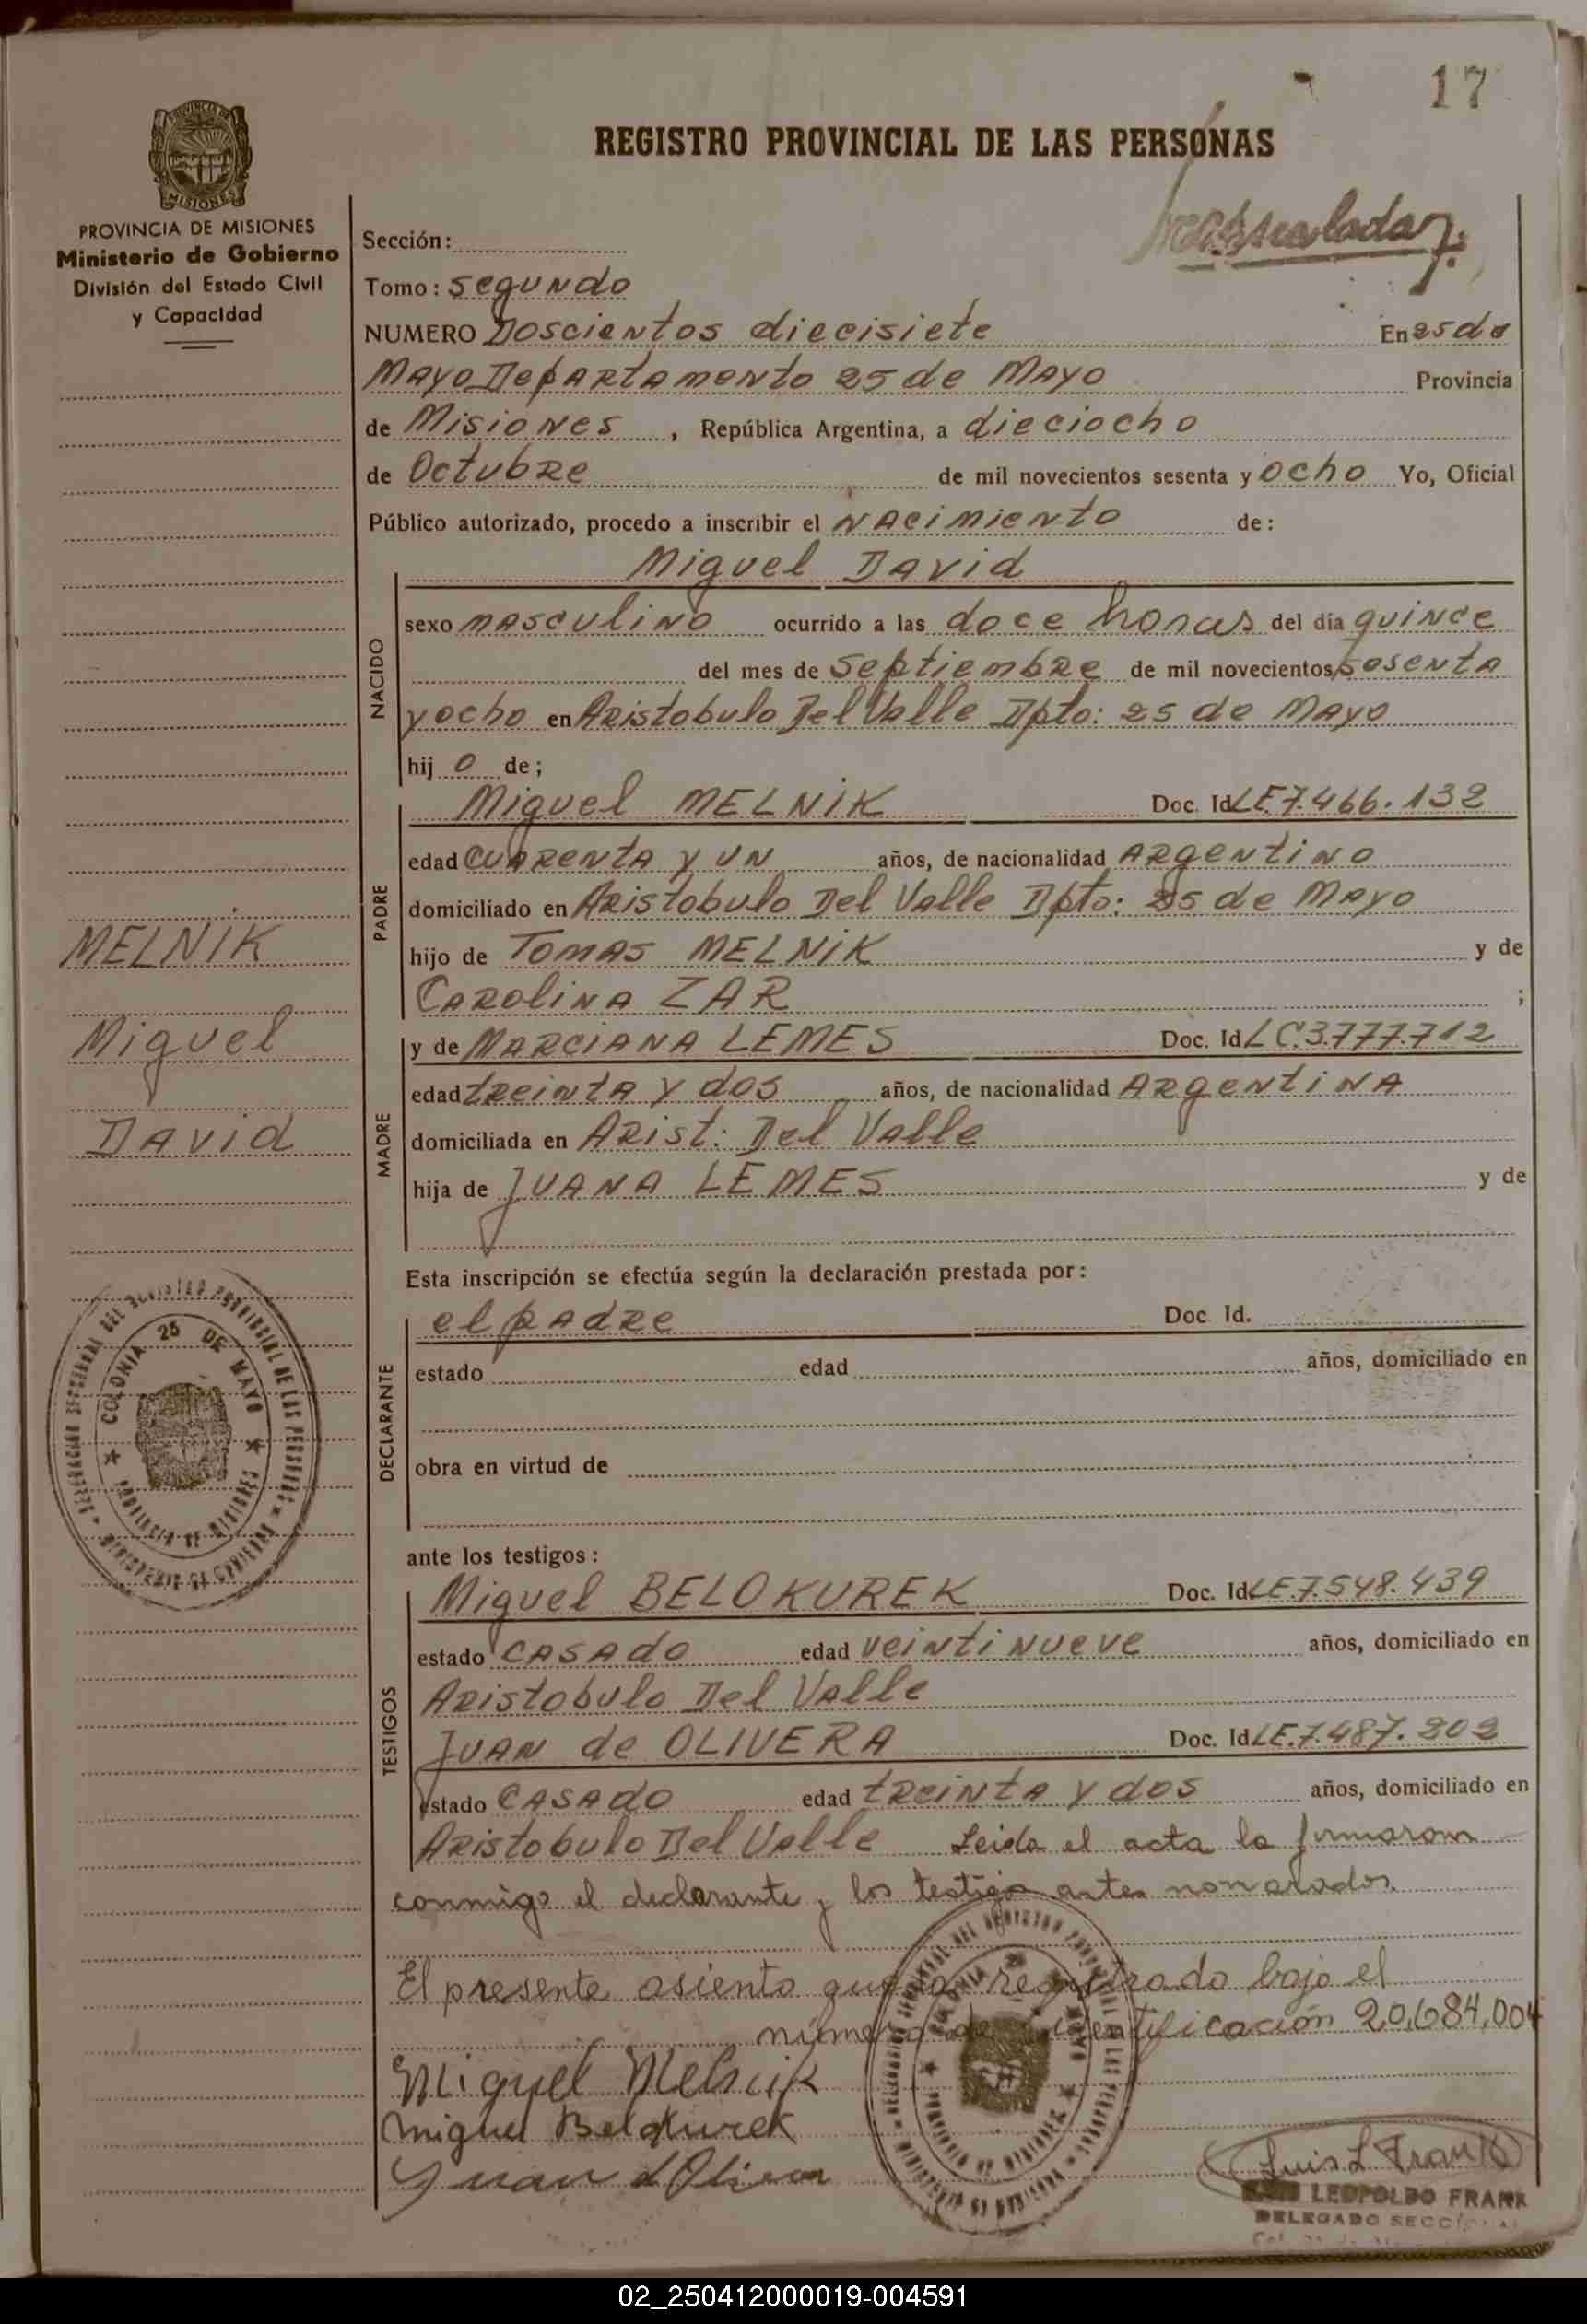 17
REGISTRO PROVINCIAL DE LAS PERSONAS
MISIONES
PROVINCIA DE MISIONES
Ministerio de Gobierno
División del Estado Civil
y Capacidad
Sección:
Tomo: segundo
NUMERO Doscientos diecisiete En 25 de
Mayo Departamento 25 de Mayo Provincia
de Misiones, República Argentina, a dieciocho
de Octubre de mil novecientos sesenta y ocho Yo, Oficial
Público autorizado, procedo a inscribir el nacimiento de:
NACIDO
Miguel David
sexo masculino ocurrido a las doce horas del día quince
del mes de septiembre de mil novecientos sesenta
y ocho en Aristobulo Del Valle Dpto: 25 de Mayo
hijo de;
PADRE
Miguel MELNIK Doc. Id LE 7.466.132
edad cuarenta y un años, de nacionalidad Argentino
domiciliado en Aristobulo Del Valle Dpto: 25 de Mayo
hijo de Tomas MELNIK y de
Carolina ZAR ;
MADRE
y de MARCIANA LEMES Doc. Id LC.3.777.712
edad treinta y dos años, de nacionalidad Argentina
domiciliada en Arist: Del Valle
hija de JUANA LEMES y de
MELNIK
Miguel
David
Esta inscripción se efectúa según la declaración prestada por:
DECLARANTE
el padre Doc. Id.
estado edad años, domiciliado en
obra en virtud de
COLONIA 25 DE MAYO
PROVINCIA DE MISIONES
ante los testigos:
TESTIGOS
Miguel BELOKUREK Doc. Id LE.7.548.439
estado casado edad veintinueve años, domiciliado en
Aristobulo Del Valle
Juan de OLIVERA Doc. Id LE.7.487.202
estado casado edad treinta y dos años, domiciliado en
Aristobulo Del Valle Leida el acta la firmaron
conmigo el declarante y los testigos antes nombrados.
El presente asiento queda registrado bajo el
número de identificación 20,684,004
Miguel Melnik
Miguel Belokurek
Juan d Olivera
Luis L Frank
LEOPOLDO FRANK
DELEGADO SECCIONAL
02_250412000019-004591